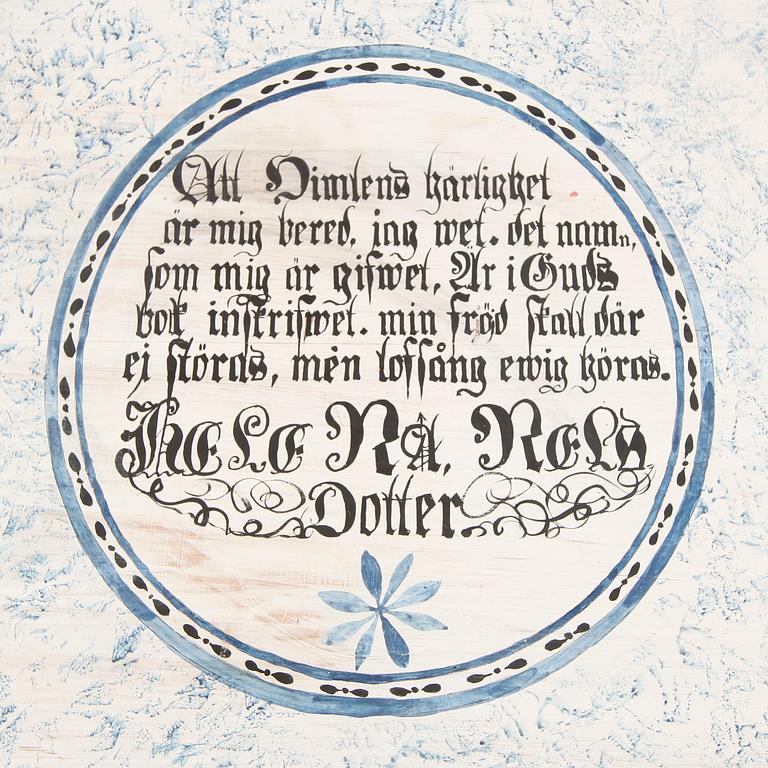 Att Himlens härlighet
är mig bered, jag wet. det namn,
som mig är gifwet, Är i Guds
bok inskrifwet. min fröd skall där
ej störas, men lofsång ewig höras.
HELENA, NELS
Dotter.